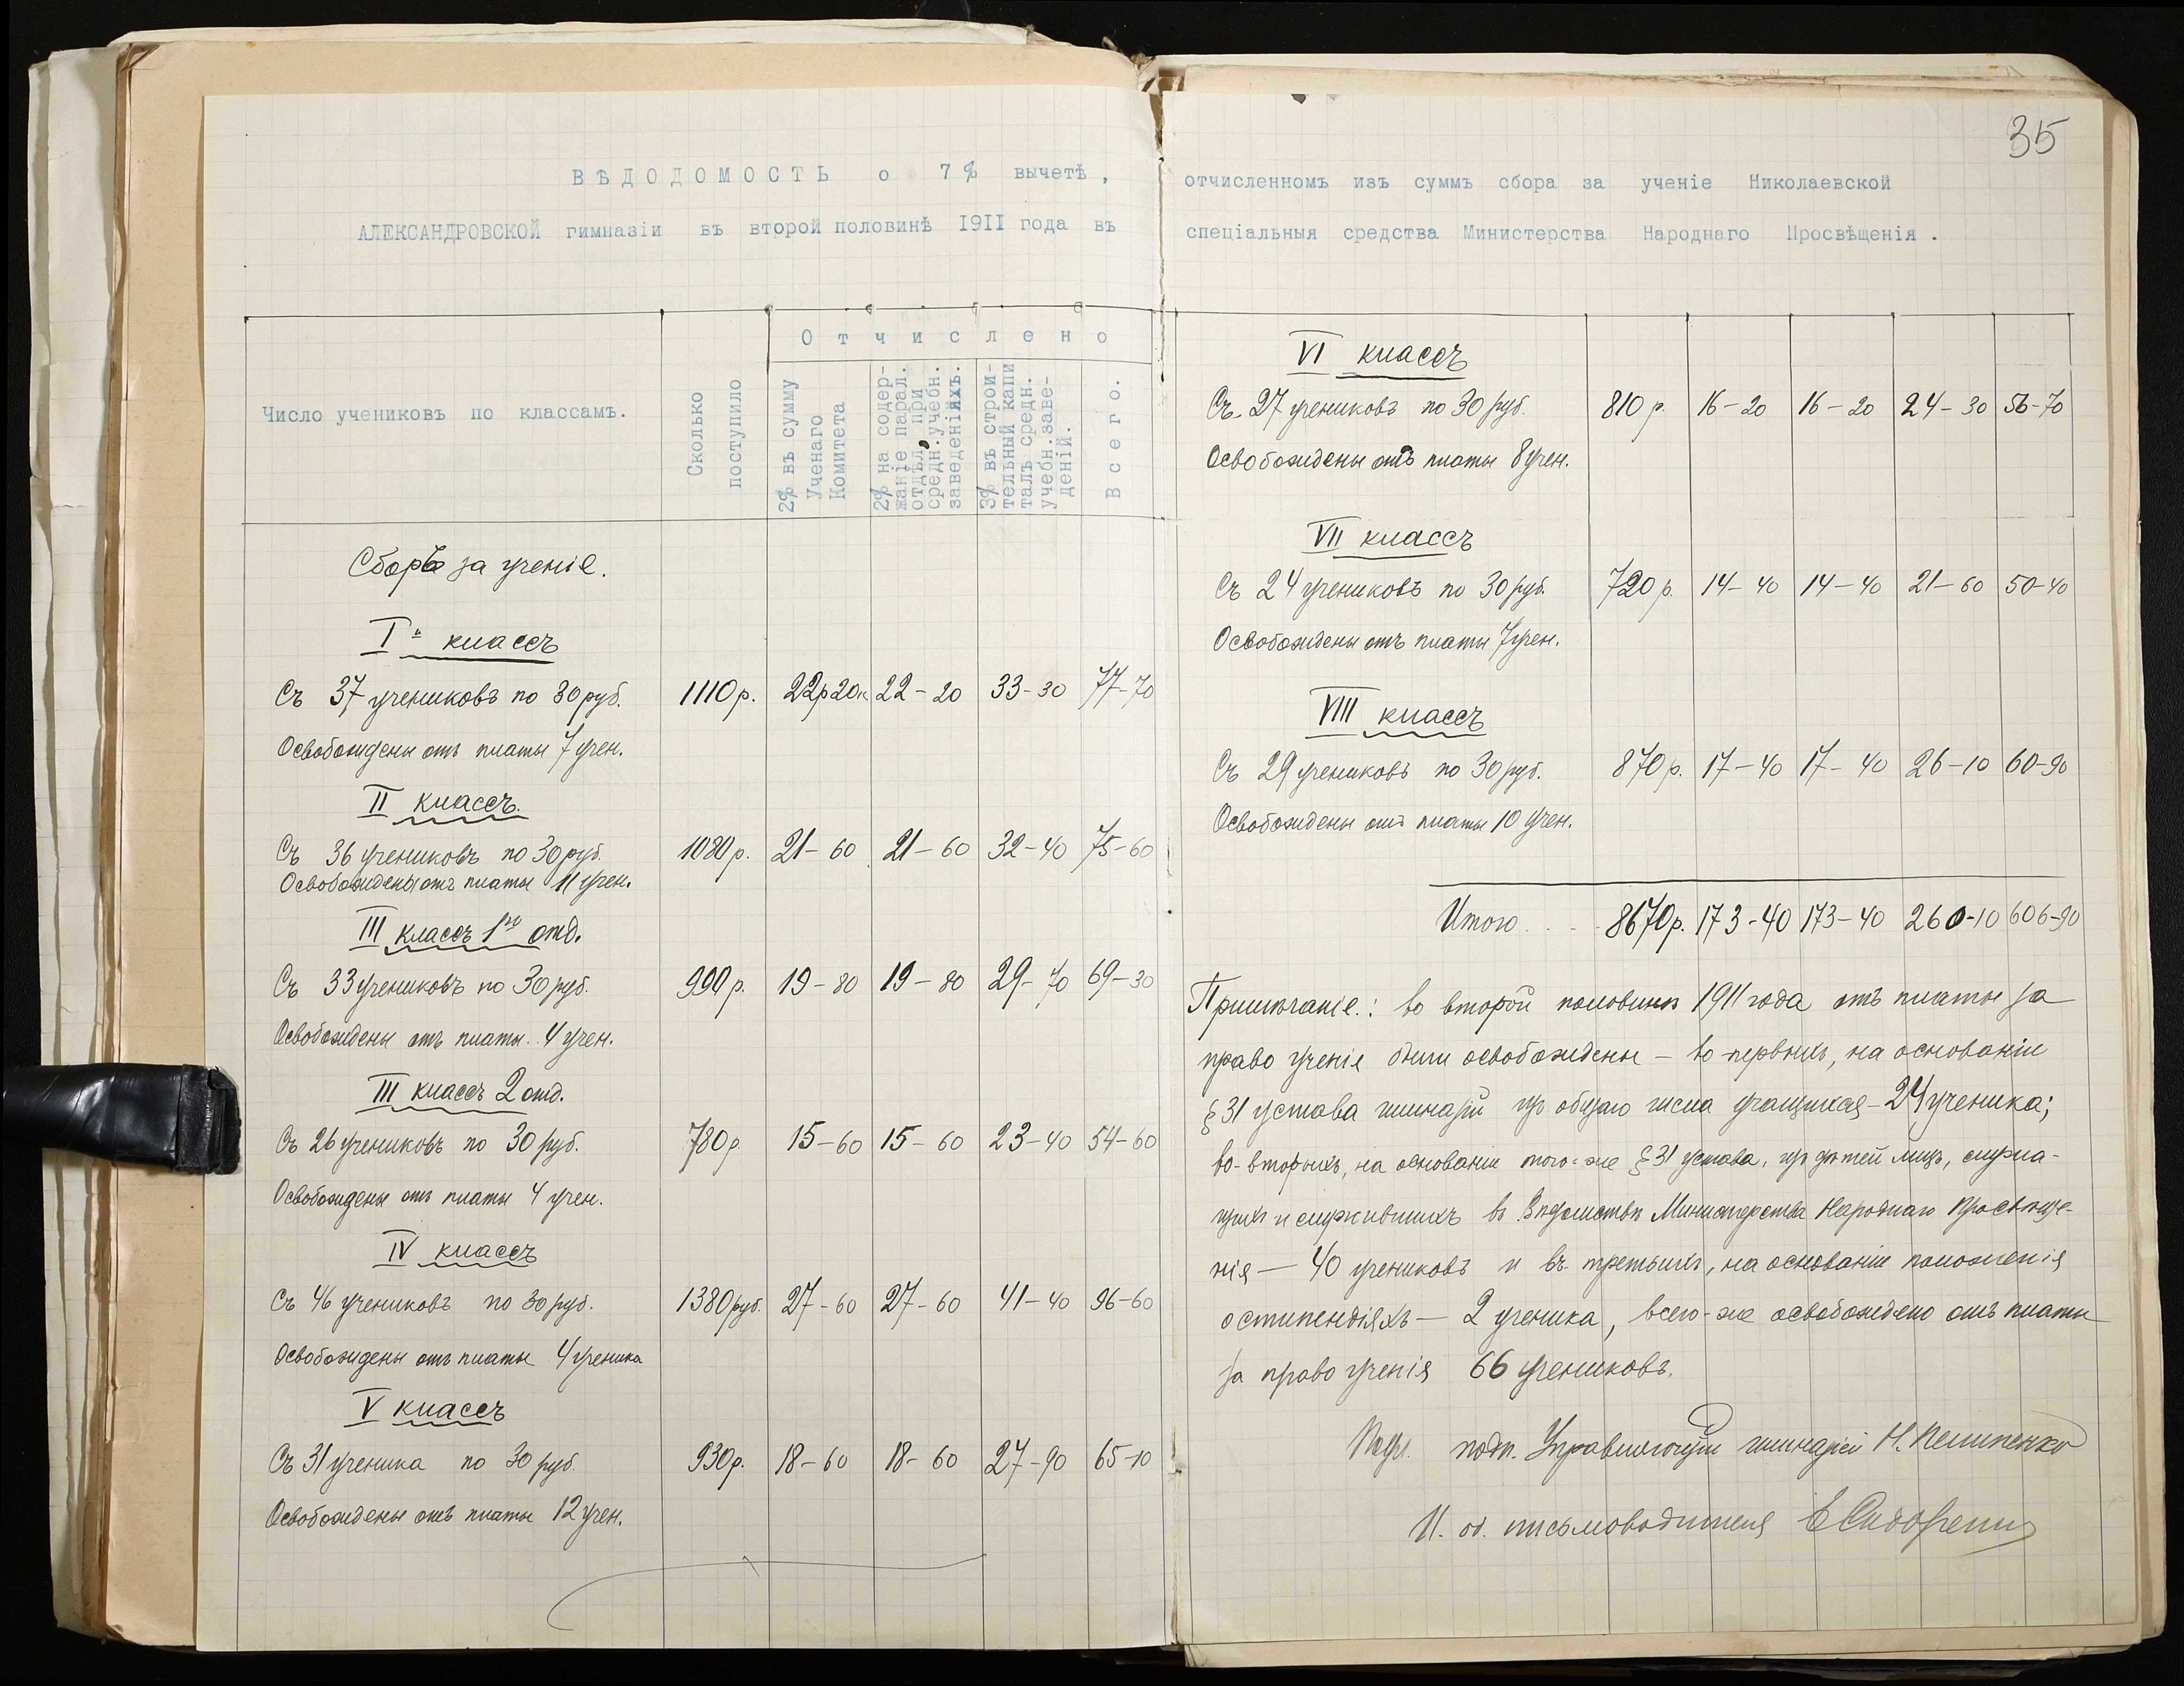 35
ВѢДОДОМОСТЬ о 7% вычетѣ, отчисленномъ изъ суммъ сбора за ученіе Николаевской
АЛЕКСАНДРОВСКОЙ гимназіи въ второй половинѣ 1911 года въ спеціальныя средства Министерства Народнаго Просвѣщенія.
Число учениковъ по классамъ.
Сколько
поступило
Отчислено
2% въ сумму
Ученаго
Комитета
2% на содер-
жаніе парал.
отдѣл. при
средн.учебн.
заведеніяхъ.
3% въ строи-
тельный капи
талъ средн.
учебн.заве-
деній.
Всего.
Сборъ за ученіе.
I й классъ
Съ 37 учениковъ по 30 руб. 1110 р. 22р20к 22-20 33-30 77-70
Освобождены отъ платы 7 учен.
II классъ.
Съ 36 учениковъ по 30 руб. 1080 р. 21-60 21-60 32-40 75-60
Освобождены отъ платы 11 учен.
III классъ 1ое отд.
Съ 33 учениковъ по 30 руб. 990 р. 19-80 19-80 29-70 69-30
Освобождены отъ платы 4 учен.
III классъ 2 отд.
Съ 26 учениковъ по 30 руб. 780 р. 15-60 15-60 23-40 54-60
Освобождены отъ платы 4 учен.
IV классъ
Съ 46 учениковъ по 30 руб. 1380 руб. 27-60 27-60 41-40 96-60
Освобождены отъ платы 4 ученика
V классъ
Съ 31 ученика по 30 руб. 930 р. 18-60 18-60 27-90 65-10
Освобождены отъ платы 12 учен.
VI классъ
Съ 27 учениковъ по 30 руб. 810 р. 16-20 16-20 24-30 56-70
Освобождены отъ платы 8 учен.
VII классъ
Съ 24 учениковъ по 30 руб. 720 р. 14-40 14-40 21-60 50-40
Освобождены отъ платы 7 учен.
VIII классъ
Съ 29 учениковъ по 30 руб. 870 р. 17-40 17-40 26-10 60-90
Освобождены отъ платы 10 учен.
Итого.... 8670 р. 173-40 173-40 260-10 606-90
Примѣчаніе.: во второй половинѣ 1911 года отъ платы за
право ученія были освобождены - во-первыхъ, на основаніи
§31 устава гимназій изъ общаго числа учащихся - 24 ученика;
во-вторыхъ, на основаніи того-же §31 устава, изъ дѣтей лицъ, служа-
щихъ и служившихъ въ Вѣдомствѣ Министерства Народнаго Просвѣще-
нія - 40 учениковъ и въ-третьихъ, на основаніи положенія
о стипендіяхъ - 2 ученика, всего-же освобождено отъ платы
за право ученія 66 учениковъ.
подп. Управляющій гимназіей Н.
И. об. письмоводителя